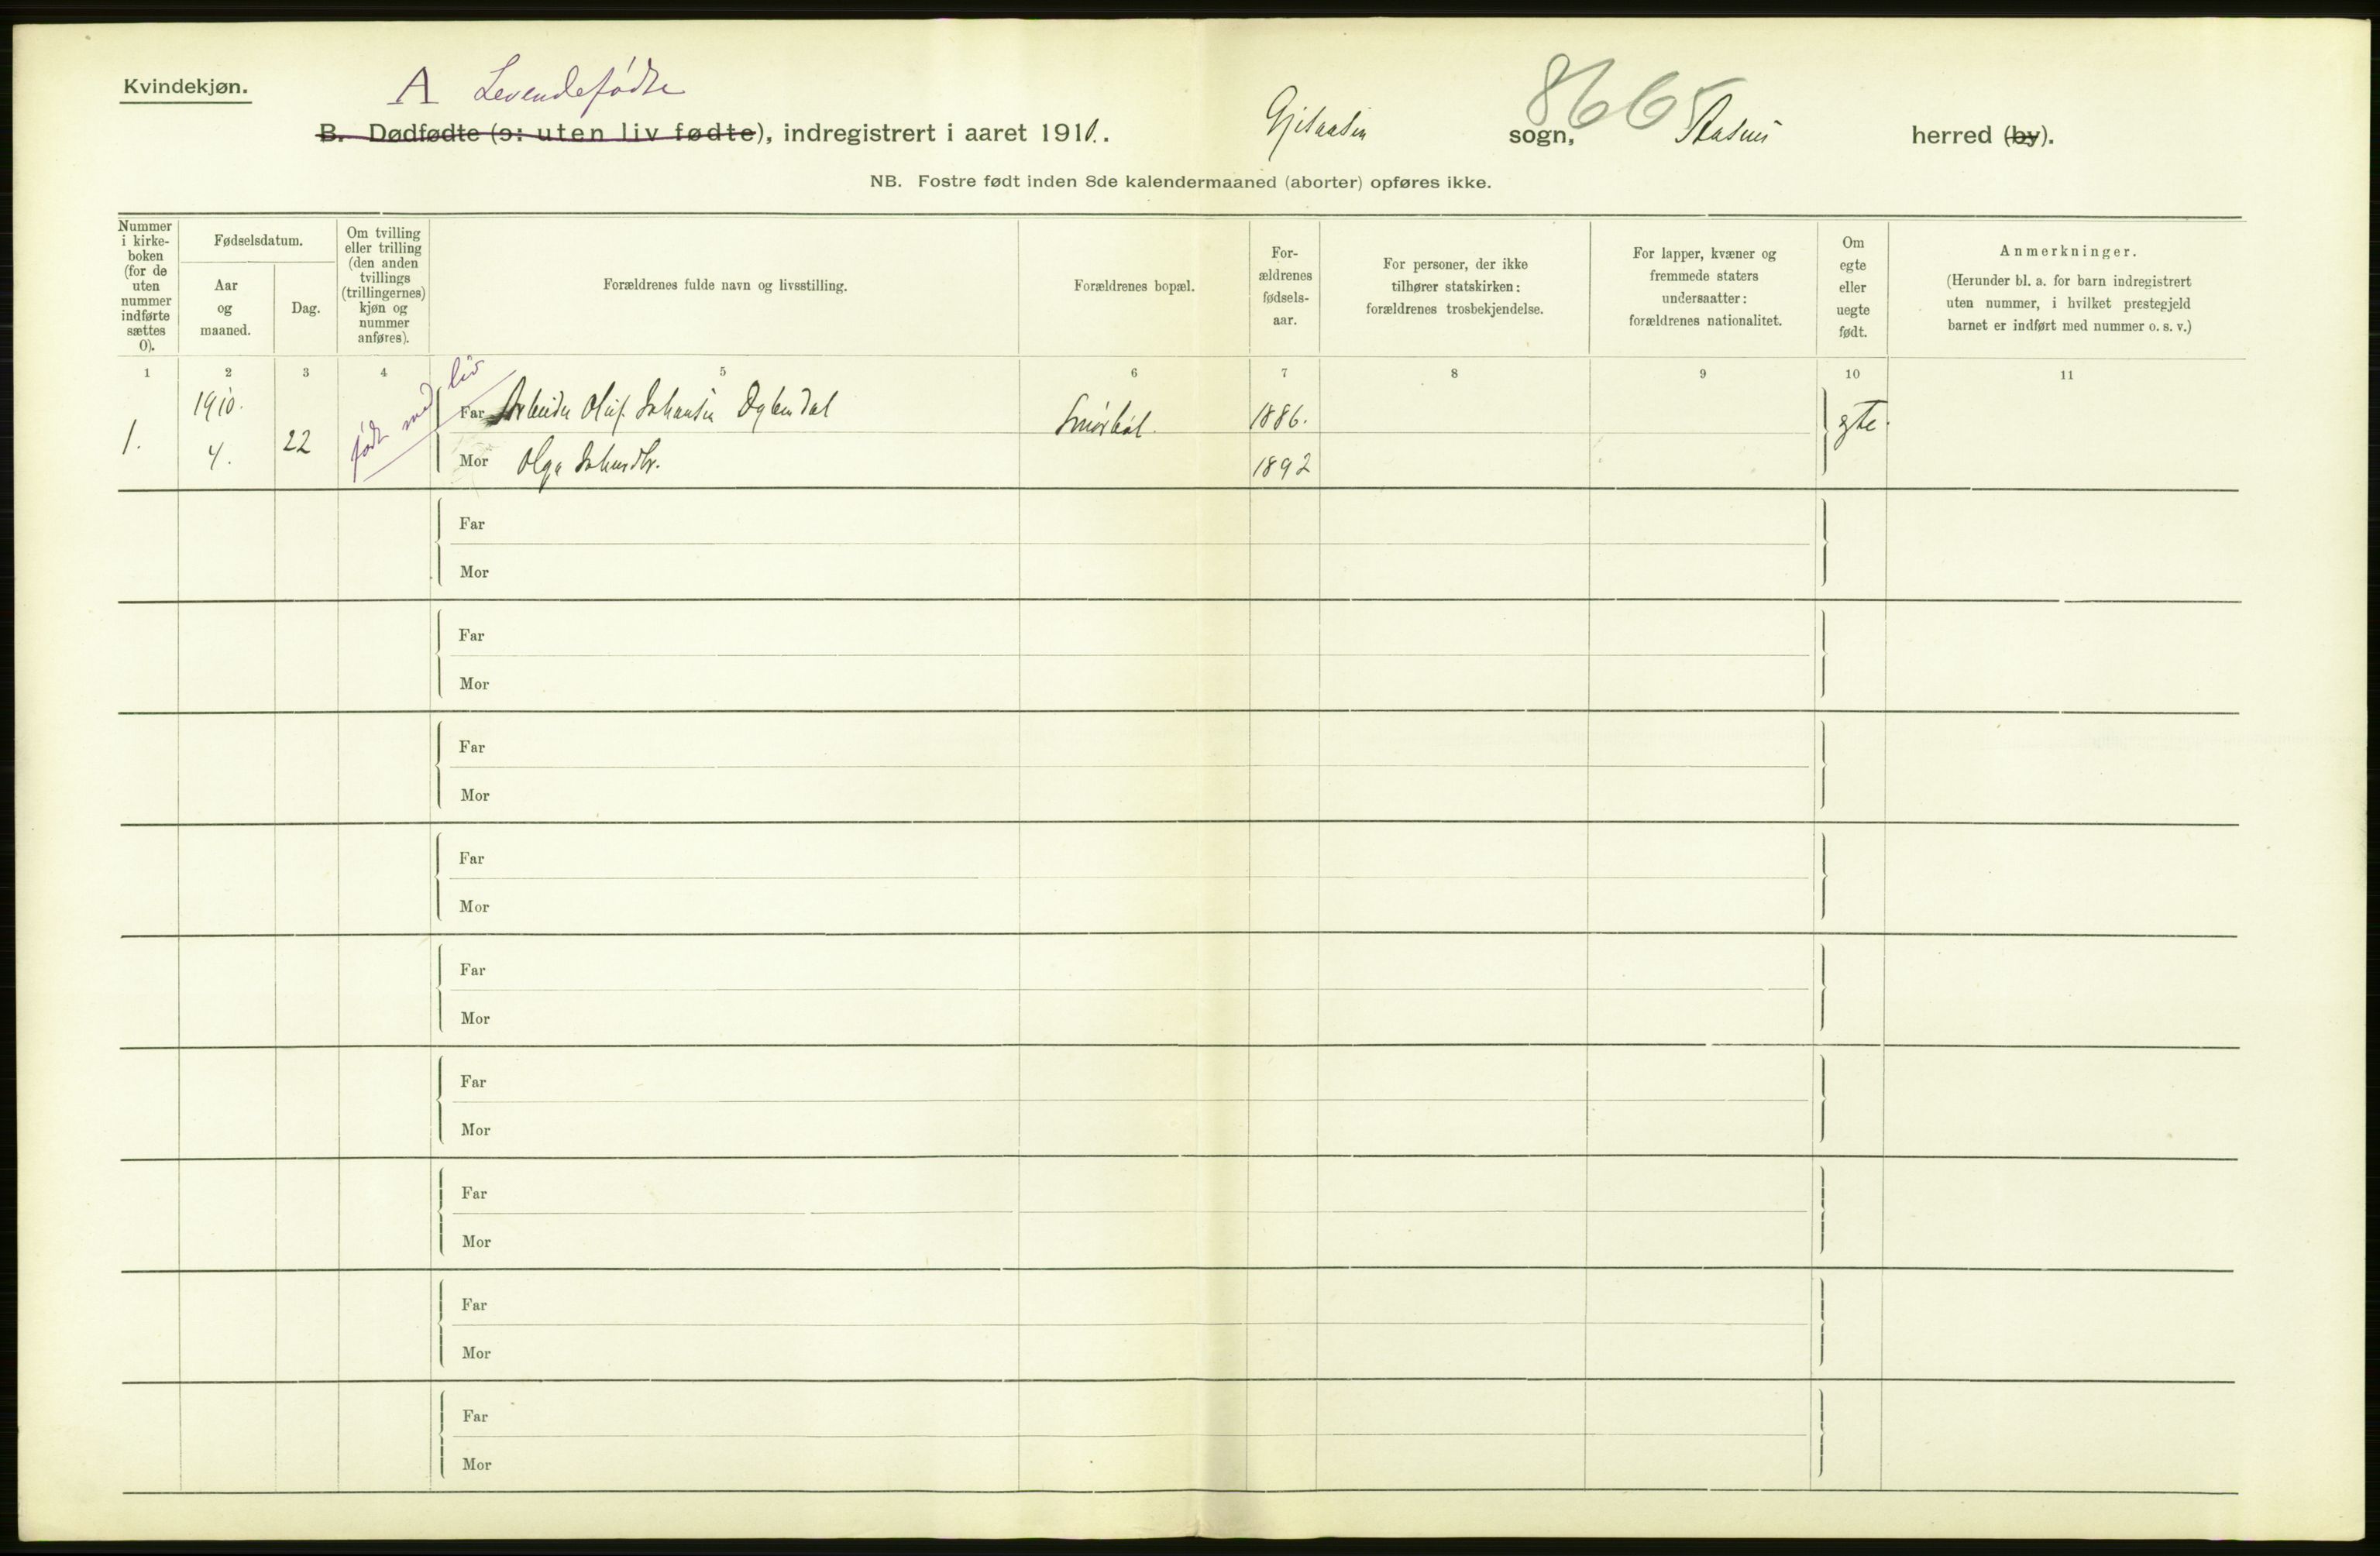 Kvindekjøn.
A Levendefødte
8665
B. Dødfødte (ɔ: uten liv fødte), indregistrert i aaret 1910. Gjesaasen sogn, Aasnes herred (by).
NB. Fostre født inden 8de kalendermaaned (aborter) opføres ikke.
Nummer
i kirke-
boken
(for de
uten
nummer
indførte
sættes
0).
Fødselsdatum.
Aar
og
maaned.
Dag.
Om tvilling
eller trilling
(den anden
tvillings
(trillingernes)
kjøn og
nummer
anføres).
Forældrenes fulde navn og livsstilling.
Forældrenes bopæl.
For-
ældrenes
fødsels-
aar.
For personer, der ikke
tilhører statskirken:
forældrenes trosbekjendelse.
For lapper, kvæner og
fremmede staters
undersaatter:
forældrenes nationalitet.
Om
egte
eller
uegte
født.
Anmerkninger.
(Herunder bl. a. for barn indregistrert
uten nummer, i hvilket prestegjeld
barnet er indført med nummer o. s. v.)
1 2 3 4 5 6 7 8 9 10 11
1.
1910.
4.
22
født med liv
Far Arbeider Oluf Johansen Dybendal
Mor Olga Johansdtr.
Smørbøl.
1886.
1892
egte.
Far
Mor
Far
Mor
Far
Mor
Far
Mor
Far
Mor
Far
Mor
Far
Mor
Far
Mor
Far
Mor